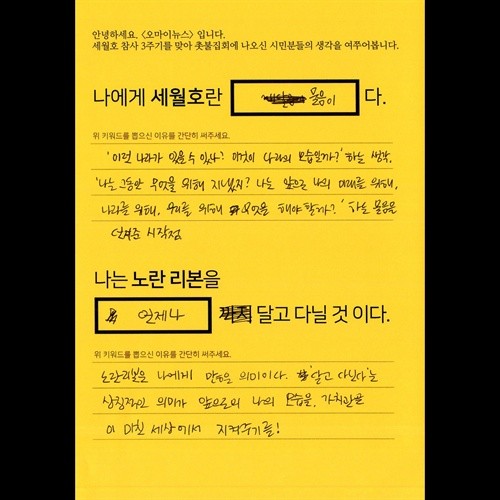 안녕하세요. <오마이뉴스> 입니다.
세월호 참사 3주기를 맞아 촛불집회에 나오신 시민분들의 생각을 여쭈어봅니다.
나에게 세월호란 물음이 다.
위 키워드를 뽑으신 이유를 간단히 써주세요.
'이런 나라가 있을 수 있나? 이것이 나라의 모습일까?' 하는 생각,
'나는 그동안 무엇을 위해 지냈지? 나는 앞으로 나의 미래를 위해,
나라를 위해, 우리를 위해 무엇을 해야 할까?' 하는 물음을
던져준 시작점
나는 노란 리본을
언제나 달고 다닐 것 이다.
위 키워드를 뽑으신 이유를 간단히 써주세요.
노란리본은 나에게 많은 의미이다. '달고 다닌다'는
상징적인 의미가 앞으로의 나의 모습을, 가치관을
이 미친 세상에서 지켜주기를!